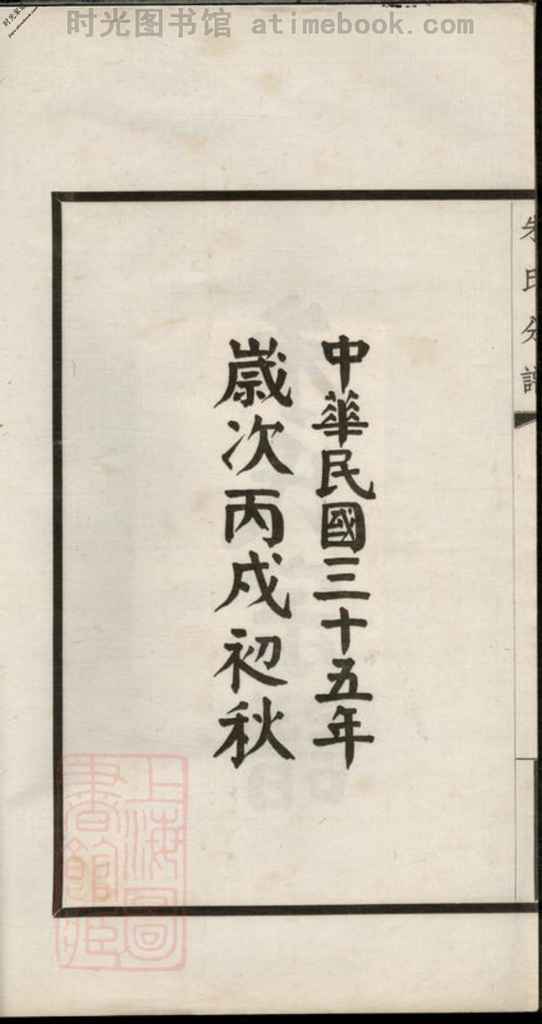 时光图书馆 atimebook.com
朱氏分譜
中華民國三十五年
歲次丙戌初秋
上海圖書館藏